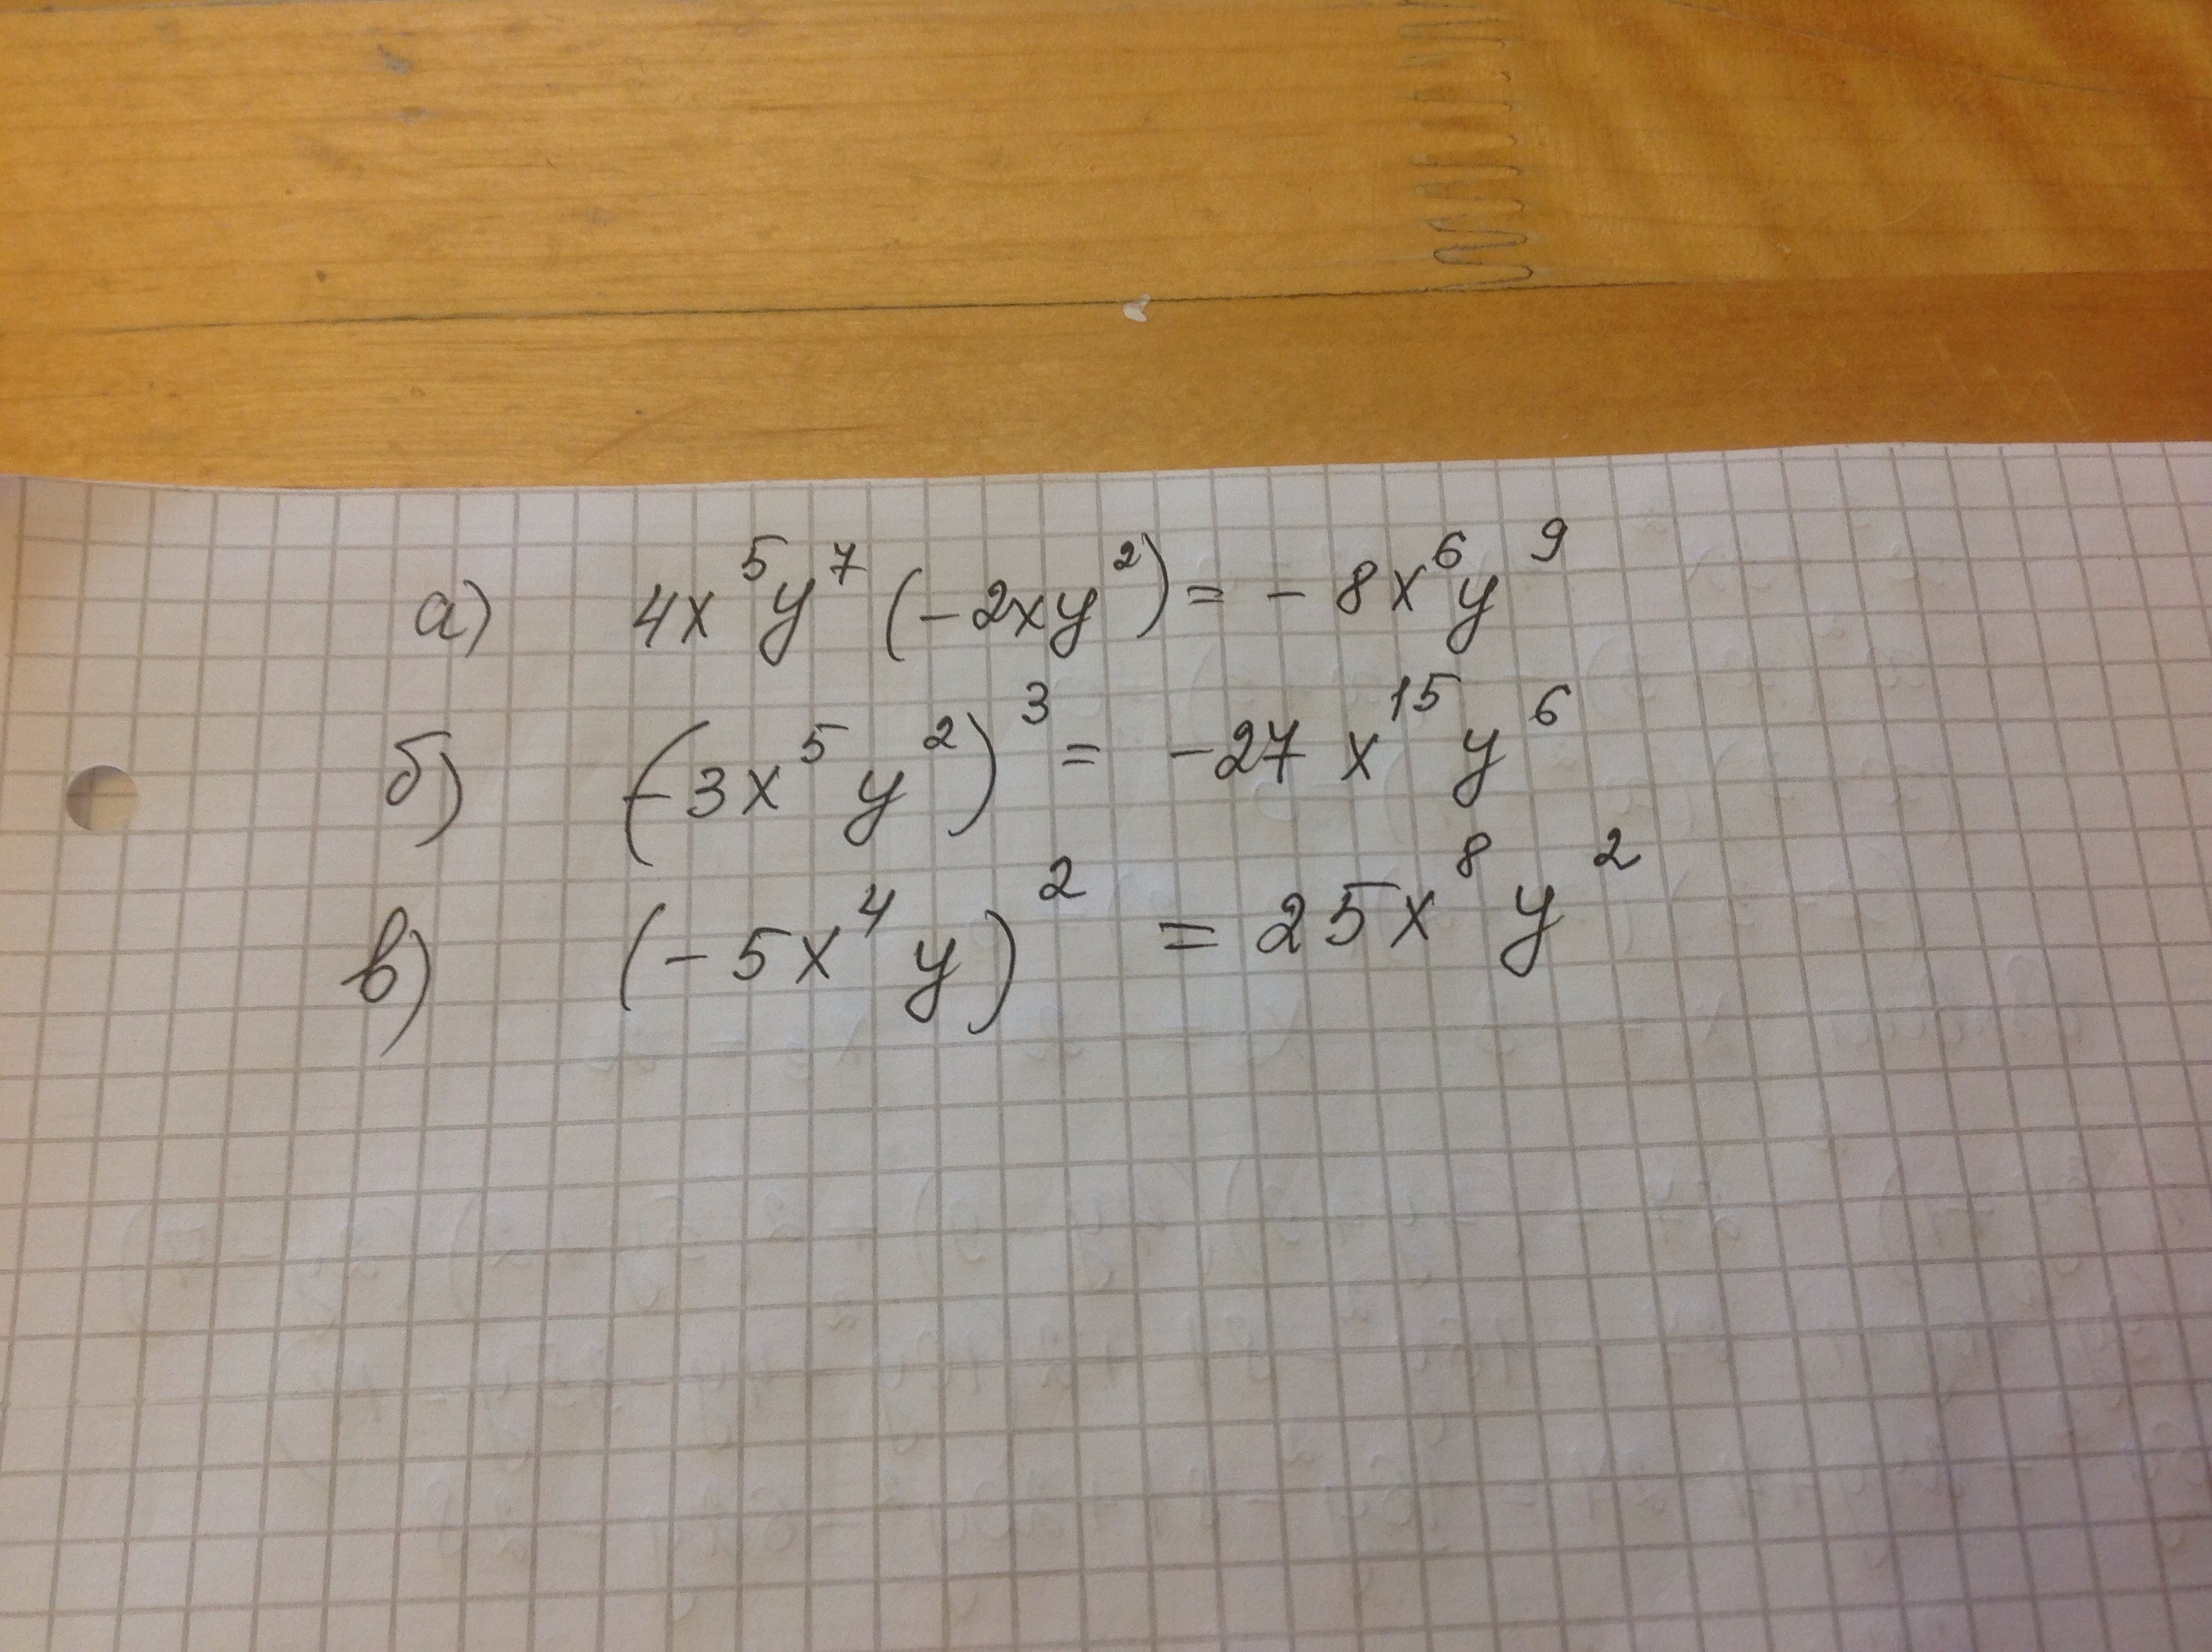 а) 4x⁵y⁷(-2xy²) = -8x⁶y⁹
б) (-3x⁵y²)³ = -27x¹⁵y⁶
в) (-5x⁴y)² = 25x⁸y²